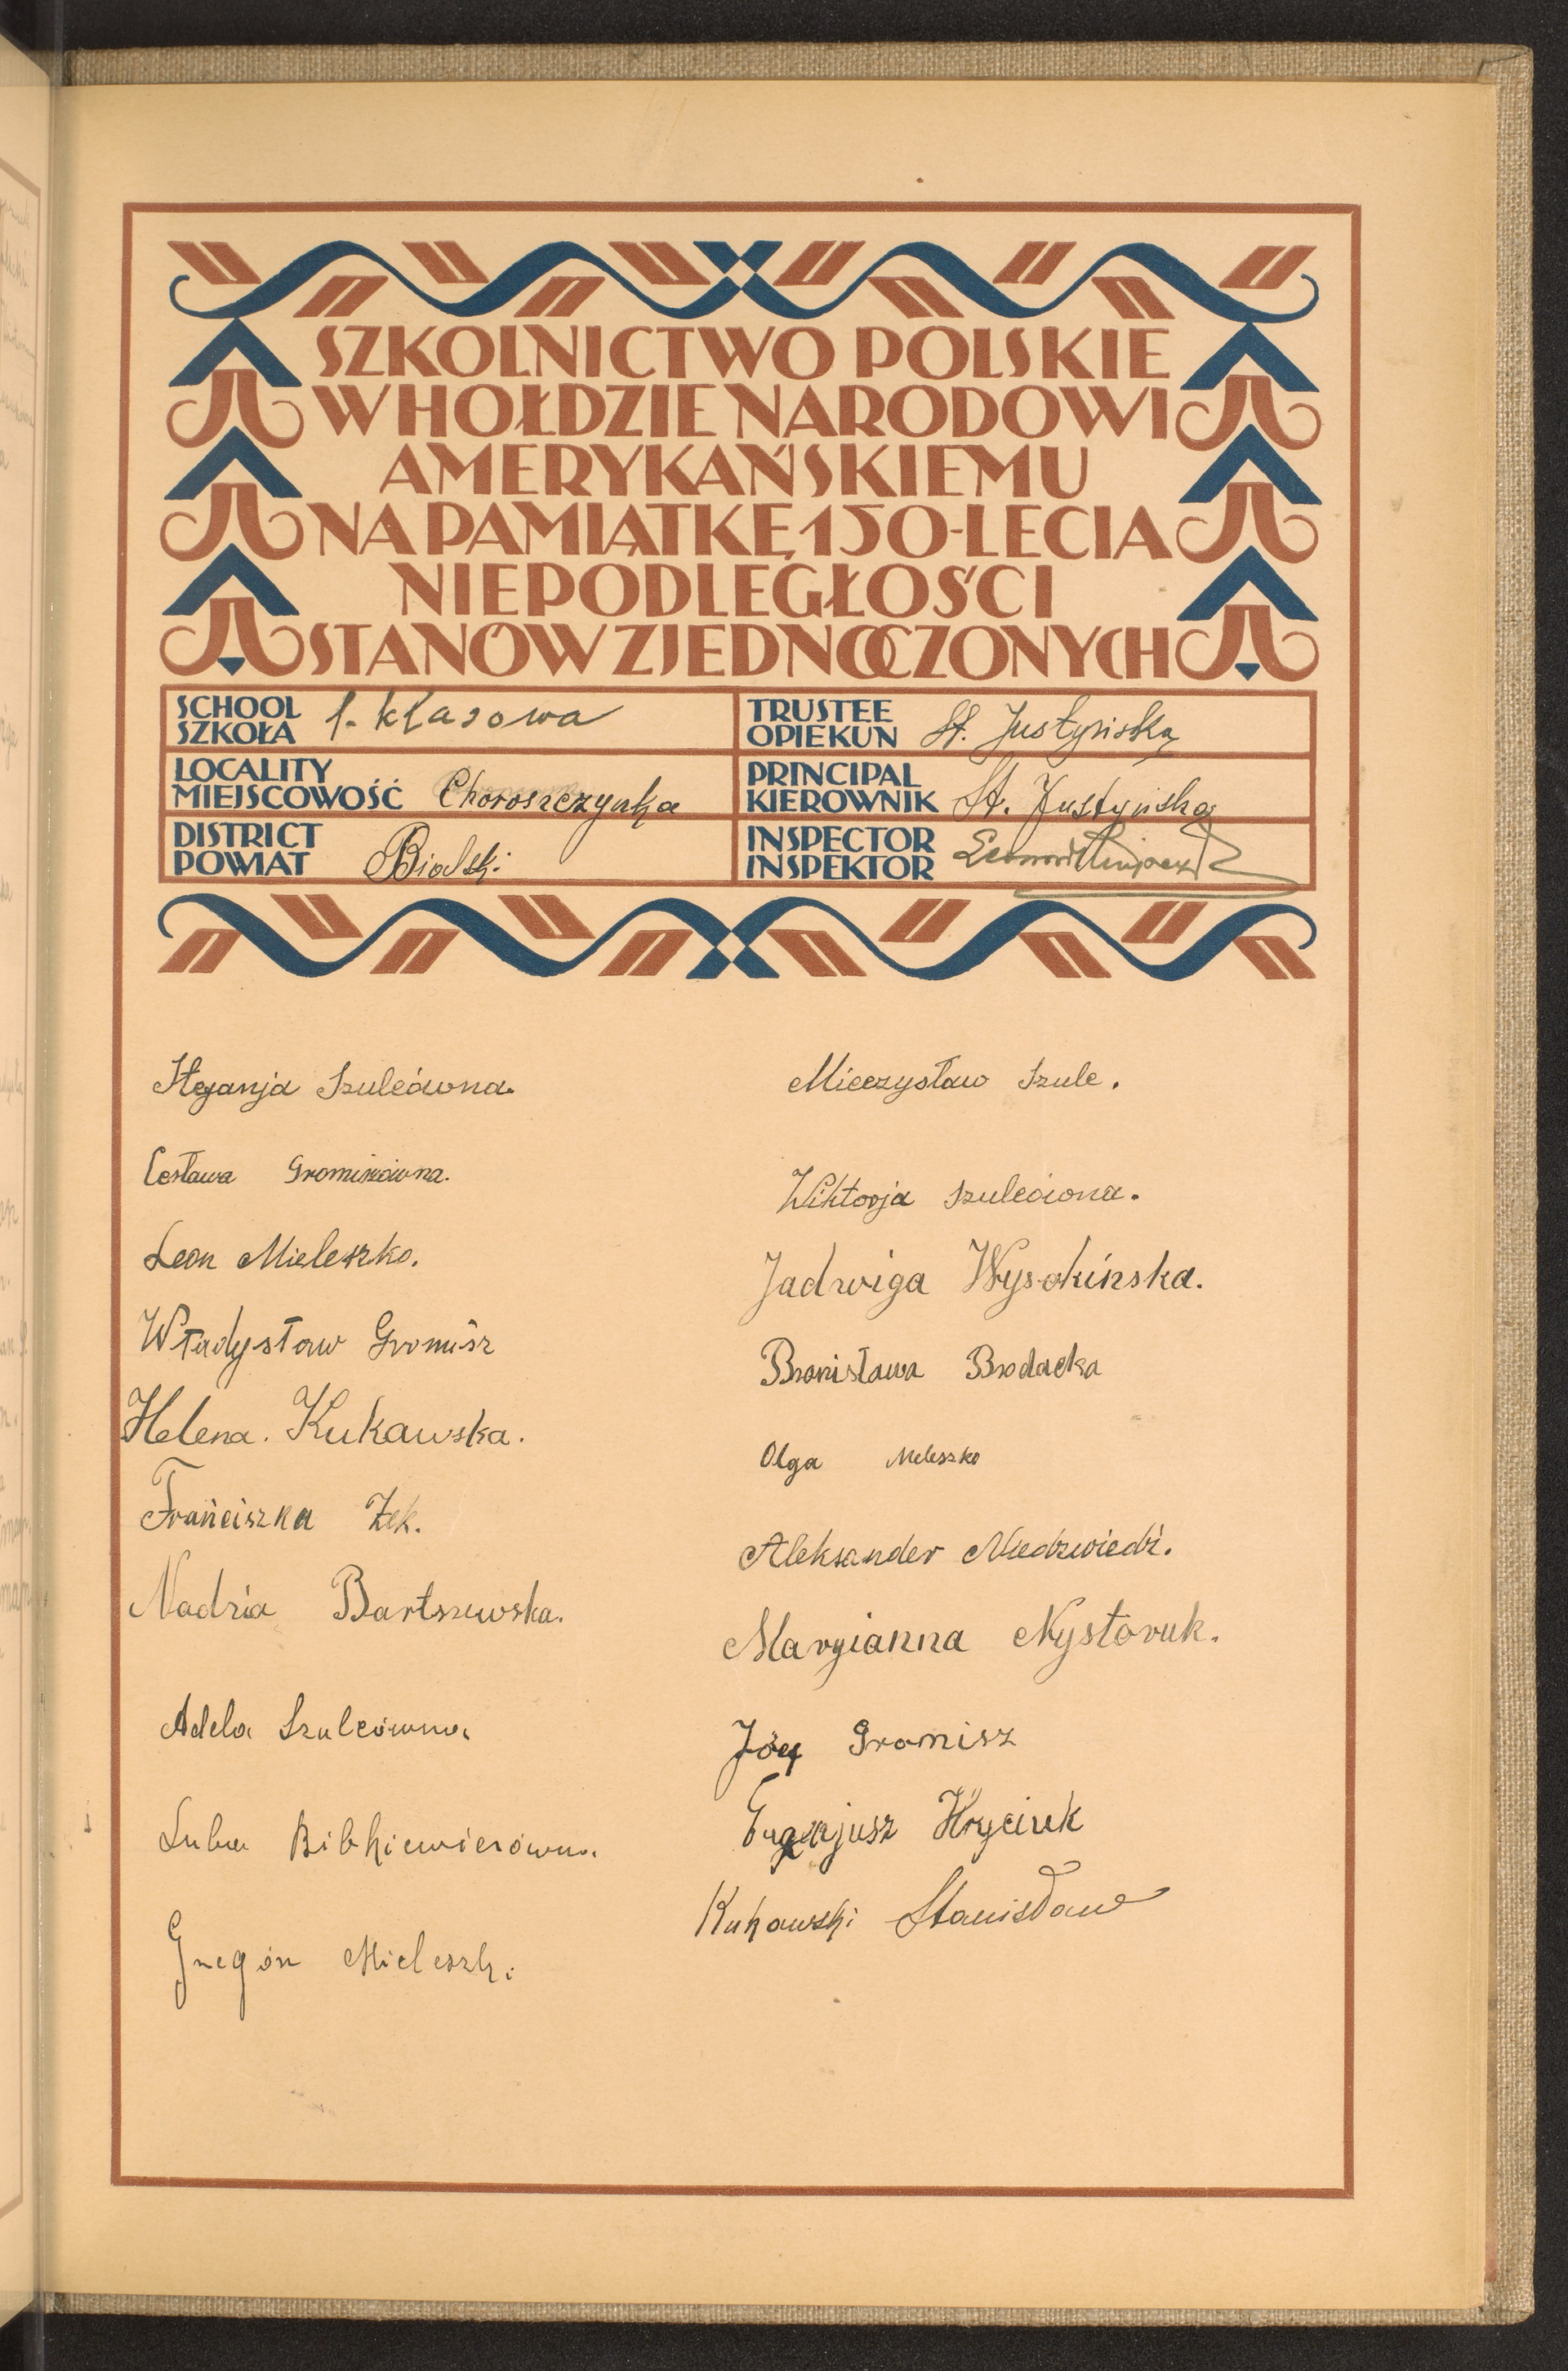 SZKOLNICTWO POLSKIE
W HOŁDZIE NARODOWI
AMERYKAŃSKIEMU
NA PAMIĄTKĘ 150-LECIA
NIEPODLEGŁOŚCI
STANÓW ZJEDNOCZONYCH
SCHOOL
SZKOŁA 1. klasowa
TRUSTEE
OPIEKUN St. Justyńska
LOCALITY
MIEJSCOWOŚĆ Choroszczynka
PRINCIPAL
KIEROWNIK St. Justyńska
DISTRICT
POWIAT Bialski
INSPECTOR
INSPEKTOR
Stefanja Szulcówna.
Cesława Gromiszówna.
Leon Mieleszko.
Władysław Gromisz
Helena. Kukawska.
Franciszka Żek.
Nadzia Bartszewska.
Adela Szulcówna.
Luba Bibkiewiczówna.
Gregór Mieleszk.
Mieczysław Szulc.
Wiktorja Szulcówna.
Jadwiga Wysokińska.
Bronisława Brodacka
Olga Meleszko
Aleksander Niedzwiedź.
Maryianna Nystoruk.
Józef Gromisz
Eugenjusz Hryciuk
Kukawski Stanisław